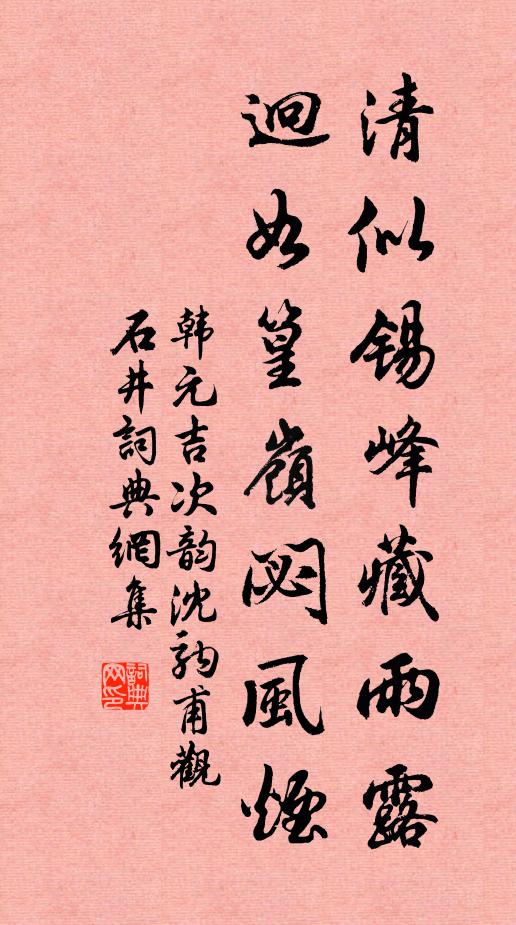 清似锡峰藏雨露
迥如篁嶺閟風煙
韩元吉次韵沈驹甫觀
石井詞典網集
詞典網印